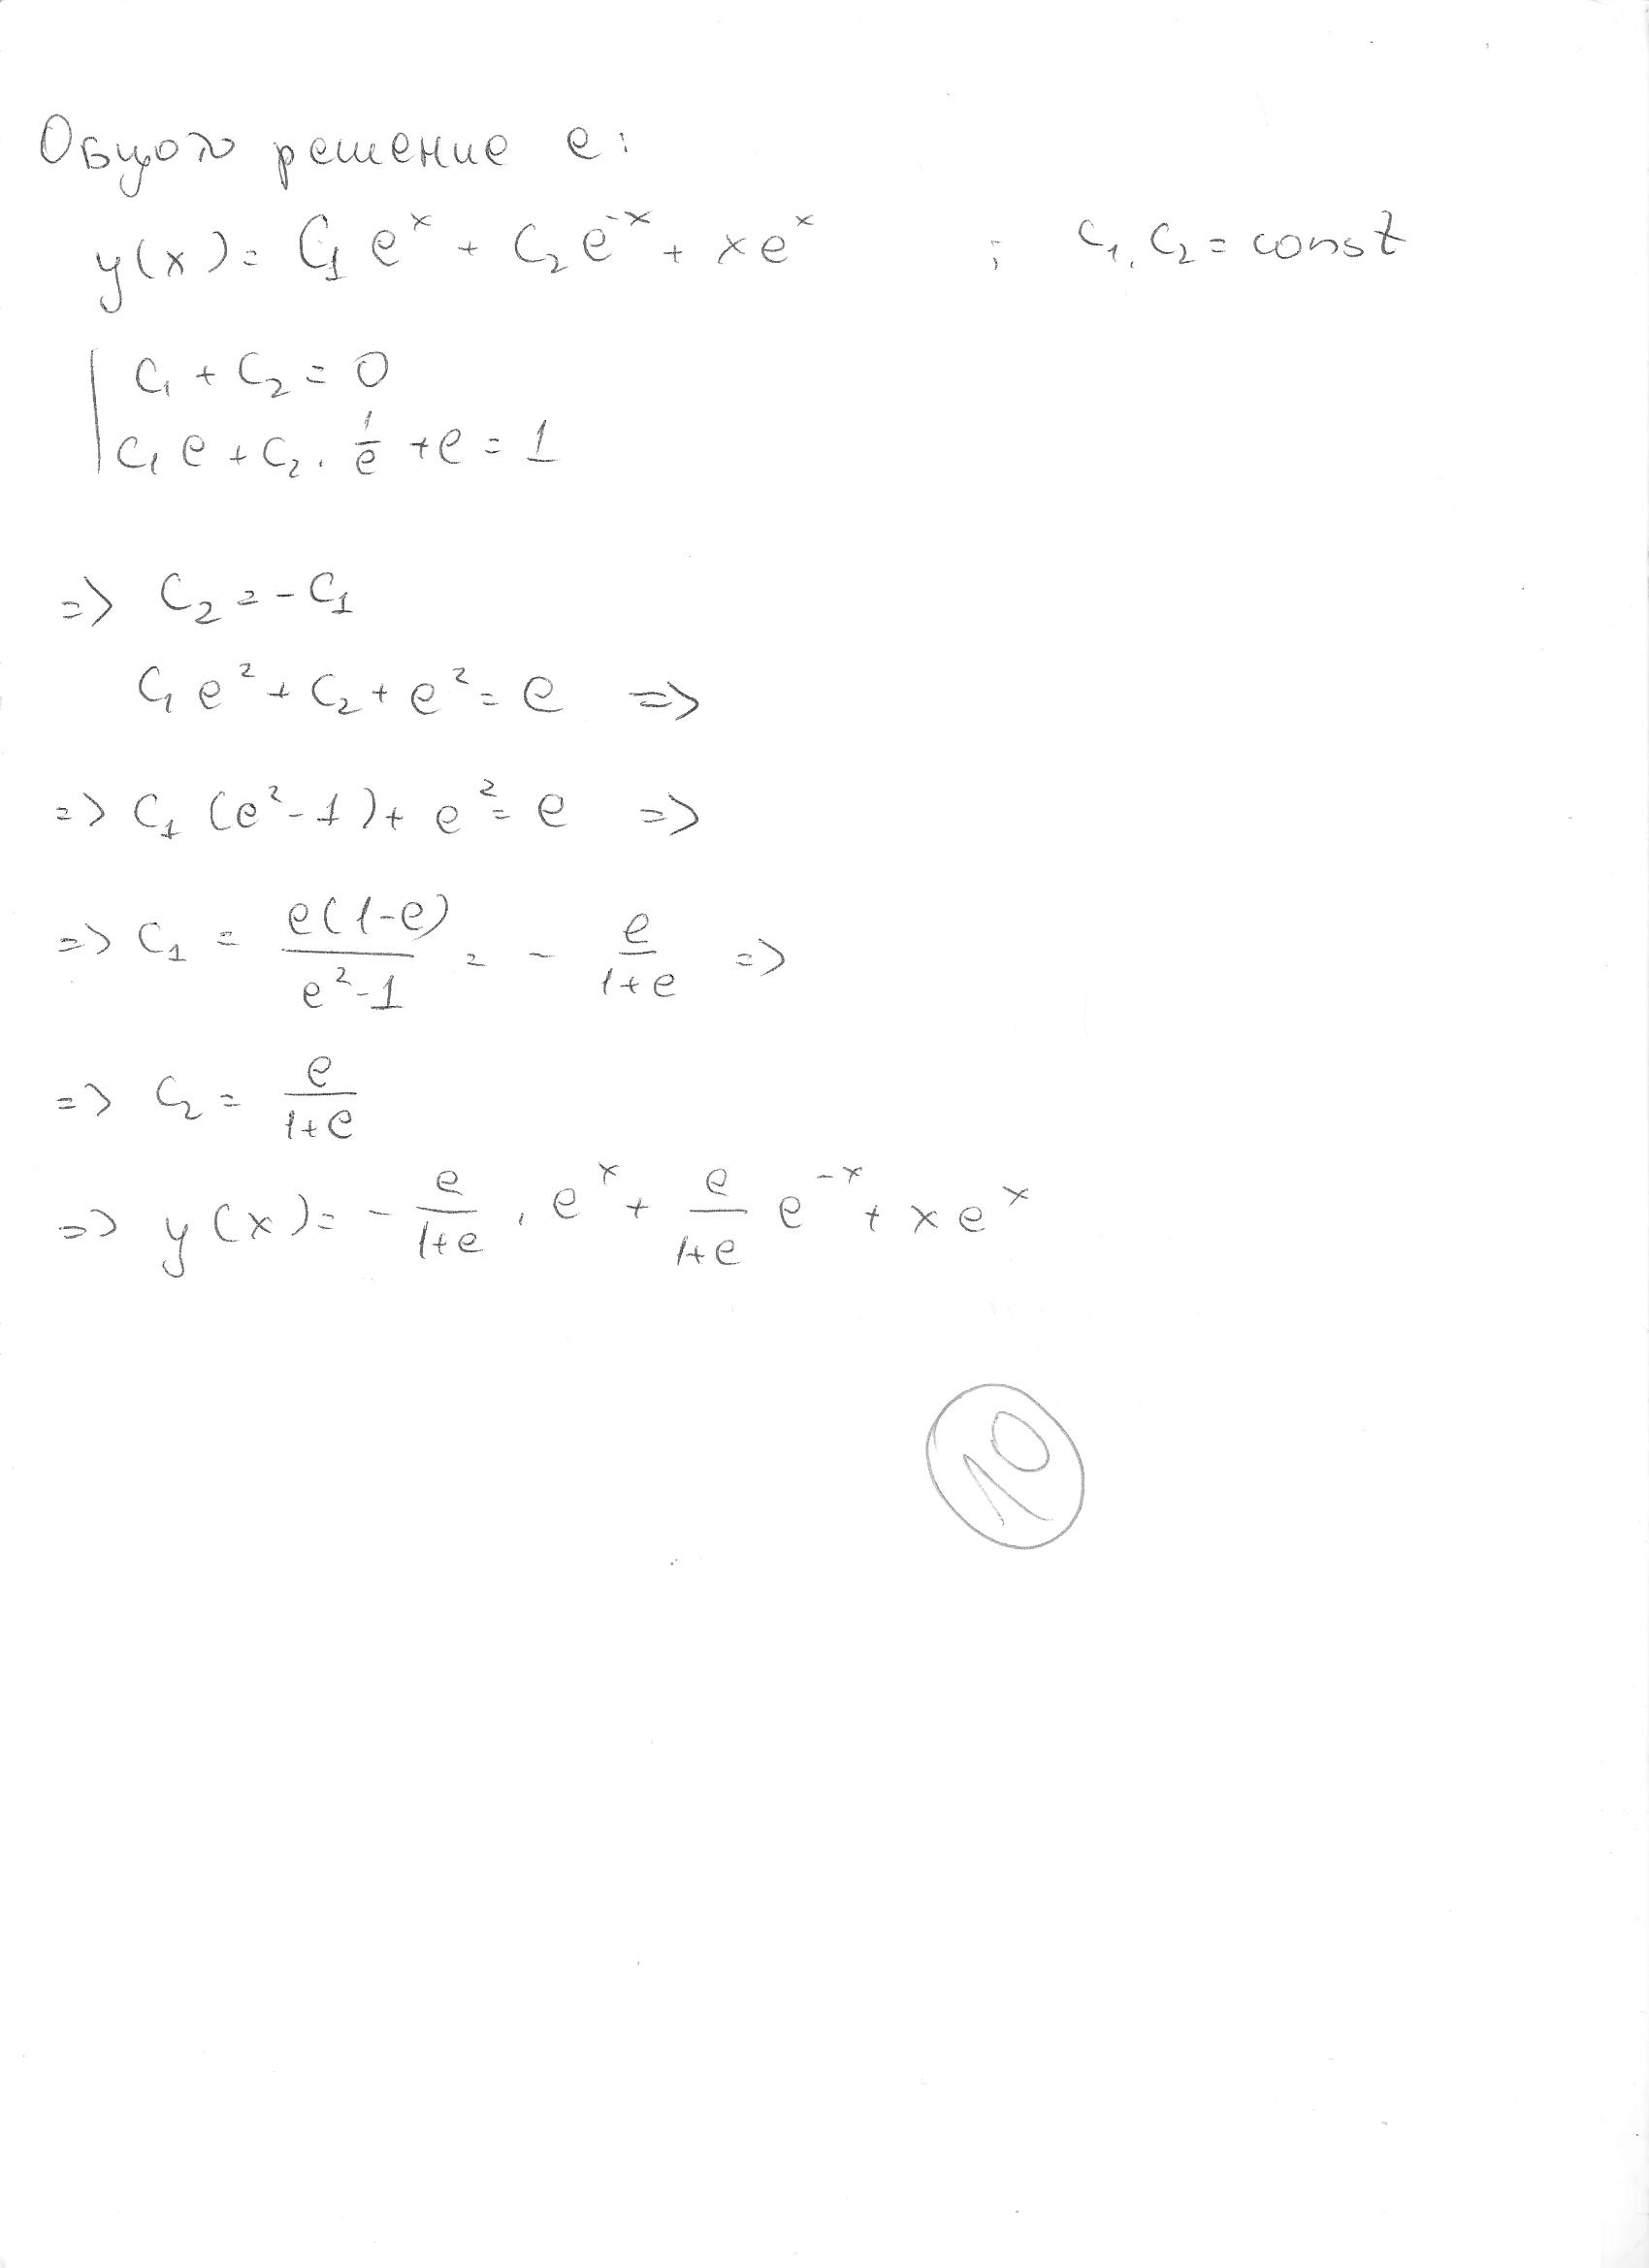 Общото решение е:
y(x) = C₁eˣ + C₂e⁻ˣ + xeˣ ; C₁, C₂ = const
C₁ + C₂ = 0
C₁e + C₂ . 1/e + e = 1
=> C₂ = -C₁
C₁e² + C₂ + e² = e =>
=> C₁(e²-1) + e² = e =>
=> C₁ = e(1-e)/(e²-1) = - e/(1+e) =>
=> C₂ = e/(1+e)
=> y(x) = - e/(1+e) . eˣ + e/(1+e) e⁻ˣ + xeˣ
10